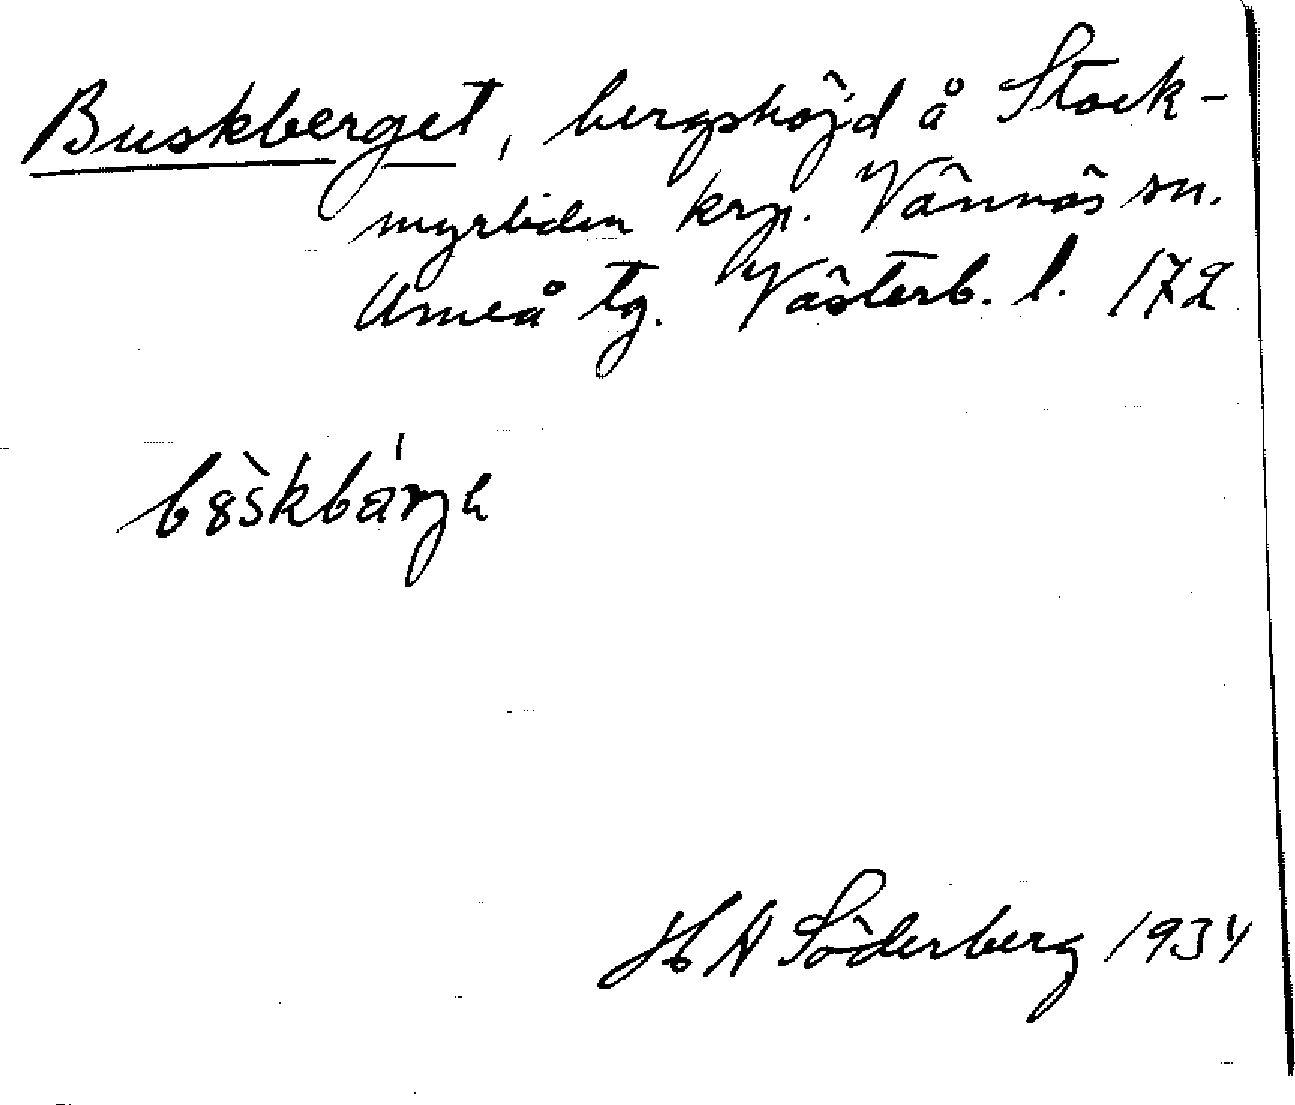 Buskberget, bergshöjd å Stock-
myrliden krp. Vännäs sn.
Umeå tg. Västerb. l. 172
H A Söderberg 1934